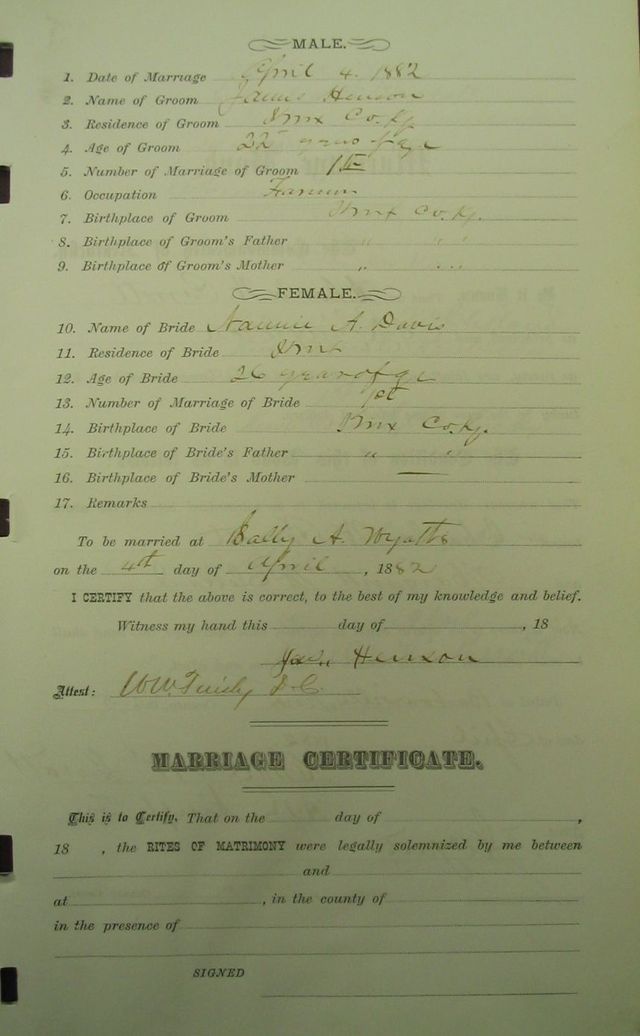 MALE.
1. Date of Marriage April 4. 1882
2. Name of Groom James Henson
3. Residence of Groom Knox Co. Ky
4. Age of Groom 22 years of age
5. Number of Marriage of Groom 1st
6. Occupation Farmer
7. Birthplace of Groom Knox Co. Ky.
8. Birthplace of Groom's Father " " "
9. Birthplace of Groom's Mother "
FEMALE.
10. Name of Bride Nannie A. Davis
11. Residence of Bride Knox
12. Age of Bride 26 years of age
13. Number of Marriage of Bride 1st
14. Birthplace of Bride Knox Co. Ky.
15. Birthplace of Bride's Father " "
16. Birthplace of Bride's Mother —
17. Remarks
To be married at Sally A. Wyatts
on the 4th day of April, 1882
I CERTIFY that the above is correct, to the best of my knowledge and belief.
Witness my hand this day of , 18
Jas. Henson
Attest: W.W. D.C.
MARRIAGE CERTIFICATE.
This is to Certify, That on the day of ,
18 , the RITES OF MATRIMONY were legally solemnized by me between
and
at , in the county of
in the presence of
SIGNED